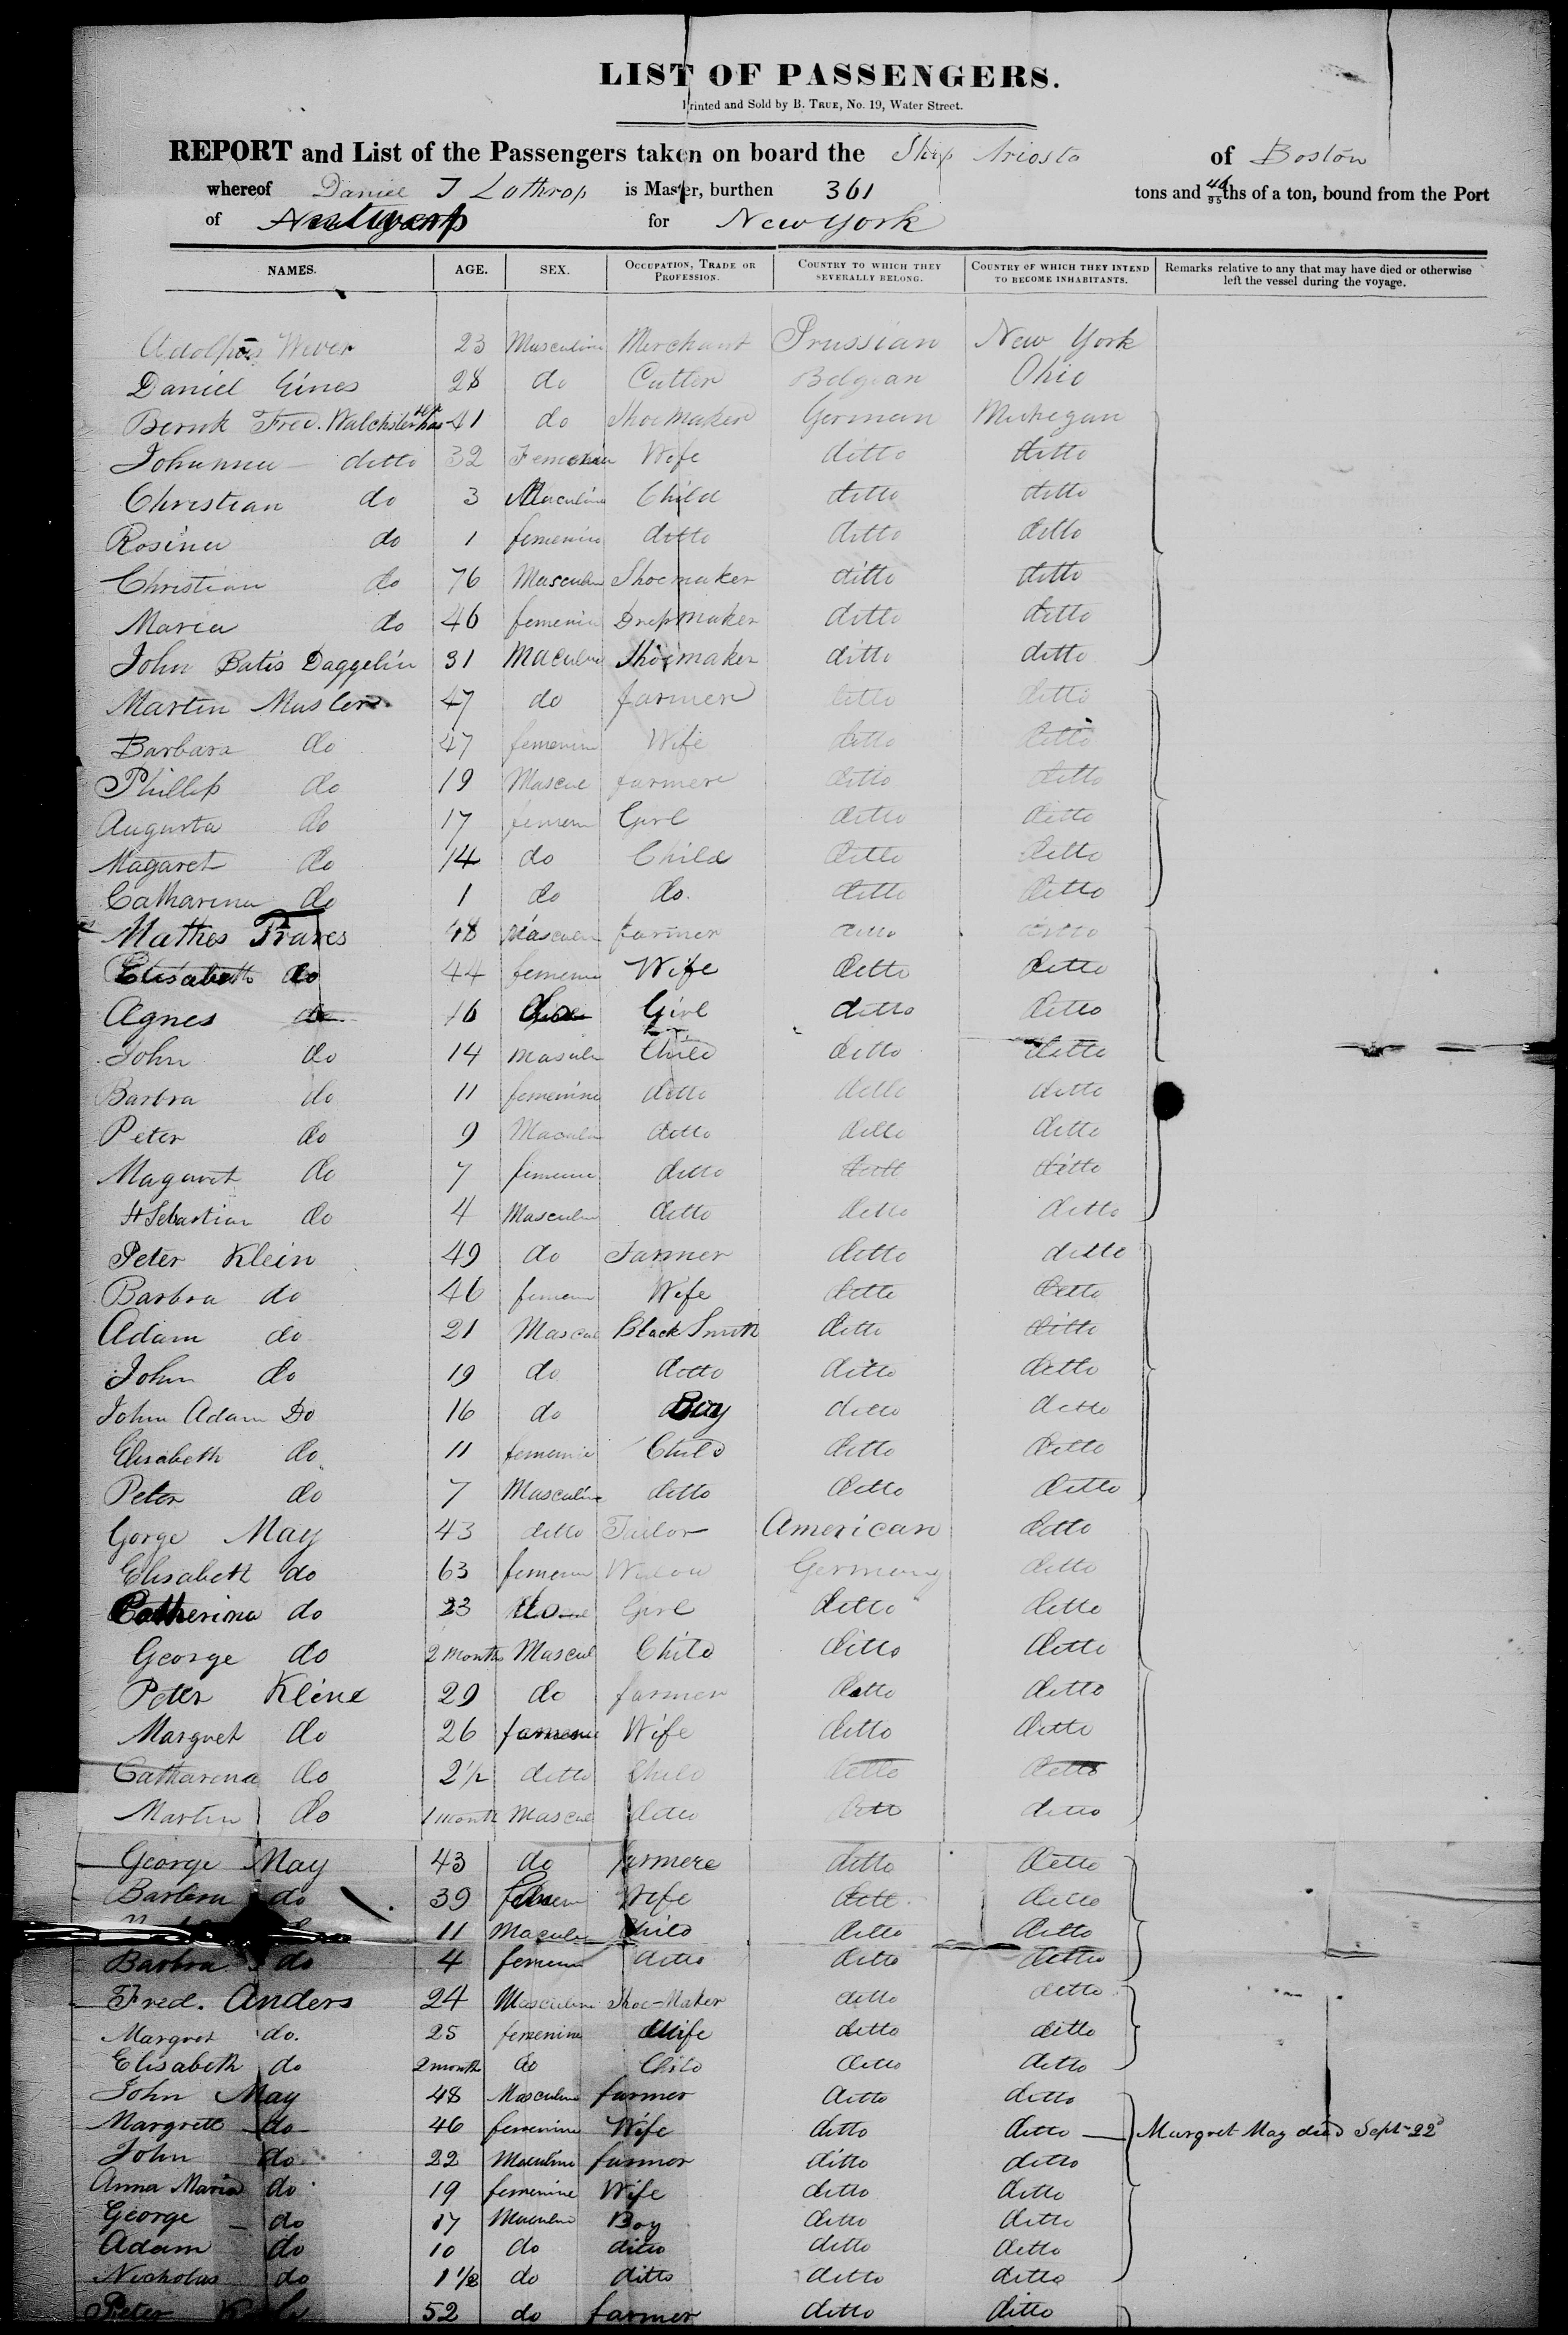 LIST OF PASSENGERS.
Printed and Sold by B. TRUE, No. 19, Water Street.
REPORT and List of the Passengers taken on board the Ship Ariosto of Boston
whereof Daniel T Lothrop is Master, burthen 361 tons and 44/95ths of a ton, bound from the Port
of Antwerp for New York
NAMES. AGE. SEX. OCCUPATION, TRADE OR PROFESSION. COUNTRY TO WHICH THEY SEVERALLY BELONG. COUNTRY OF WHICH THEY INTEND TO BECOME INHABITANTS. Remarks relative to any that may have died or otherwise left the vessel during the voyage.
23 Masculine Merchant Prussian New York
Daniel Gines 28 do Cutter Belgian Ohio
Fred. 41 do Shoemaker German Michegan
Johanna ditto 32 Wife ditto ditto
Christian do 3 Masculine Child ditto ditto
Rosina do 1 femenine ditto ditto ditto
Christian do 76 Masculin Shoemaker ditto ditto
Maria do 46 femenin Dressmaker ditto ditto
John Batis Daggelin 31 Maculine Shoemaker ditto ditto
Martin Musler 47 do farmer ditto ditto
Barbara do 47 femenine Wife ditto ditto
Phillip do 19 Mascul farmere ditto ditto
Augusta do 17 femenin Girl ditto ditto
Magaret do 14 do Child ditto ditto
Catharina do 1 do do. ditto ditto
Mathes Frares 48 Masculin farmer ditto ditto
Elisabeth do 44 femenin Wife ditto ditto
Agnes do 16 do Girl ditto ditto
John do 14 Masculin Child ditto ditto
Barbra do 11 femenine ditto ditto ditto
Peter do 9 Masculin ditto ditto ditto
Magaret do 7 femenine ditto ditto ditto
St Sebastian do 4 Masculin ditto ditto ditto
Peter Klein 49 do Farmer ditto ditto
Barbra do 46 femenin Wife ditto ditto
Adam do 21 Mascul Black Smith ditto ditto
John do 19 do ditto ditto ditto
John Adam Do 16 do Boy ditto ditto
Elisabeth do 11 femenine Child ditto ditto
Peter do 7 Masculine ditto ditto ditto
Gorge May 43 ditto Tailor American ditto
Elisabeth do 63 femenin Widow Germany ditto
Catherina do 23 do Girl ditto ditto
George do 2 month Mascul Child ditto ditto
Peter Kline 29 do farmer ditto ditto
Margret do 26 Wife ditto ditto
Catharina do 2 1/2 ditto Child ditto ditto
Martin do 1 month Mascul ditto ditto ditto
George May 43 do farmere ditto ditto
Barbra do 39 Wife ditto ditto
11 Masculin Child ditto ditto
Barbra do 4 femenin ditto ditto ditto
Fred. Anders 24 Masculine Shoe-Maker ditto ditto
Margret do. 25 femenine Wife ditto ditto
Elisabeth do 2 month do Child ditto ditto
John May 48 Masculine farmer ditto ditto
Margrett do 46 femenine Wife ditto ditto Margret May died Sept 22d
John do 22 Maculine farmer ditto ditto
Anna Maria do 19 femenine Wife ditto ditto
George do 17 Masculine Boy ditto ditto
Adam do 10 do ditto ditto ditto
Nicholas do 1 1/2 do ditto ditto ditto
Peter 52 do farmer ditto ditto